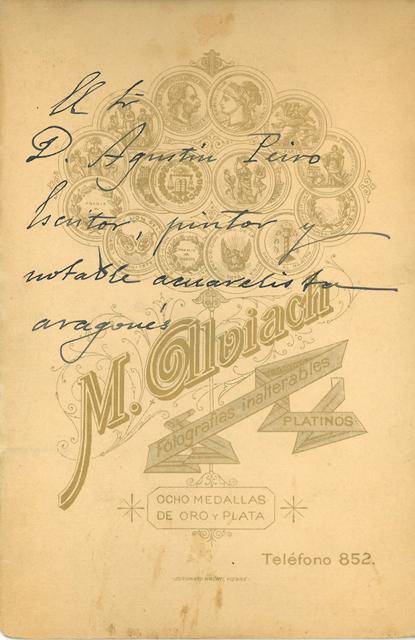 El Sr
D. Agustín Peiro
Escritor, pintor y
notable acuarelista
aragonés
M. Alviach
Fotografías inalterables
PLATINOS
OCHO MEDALLAS
DE ORO Y PLATA
Teléfono 852.